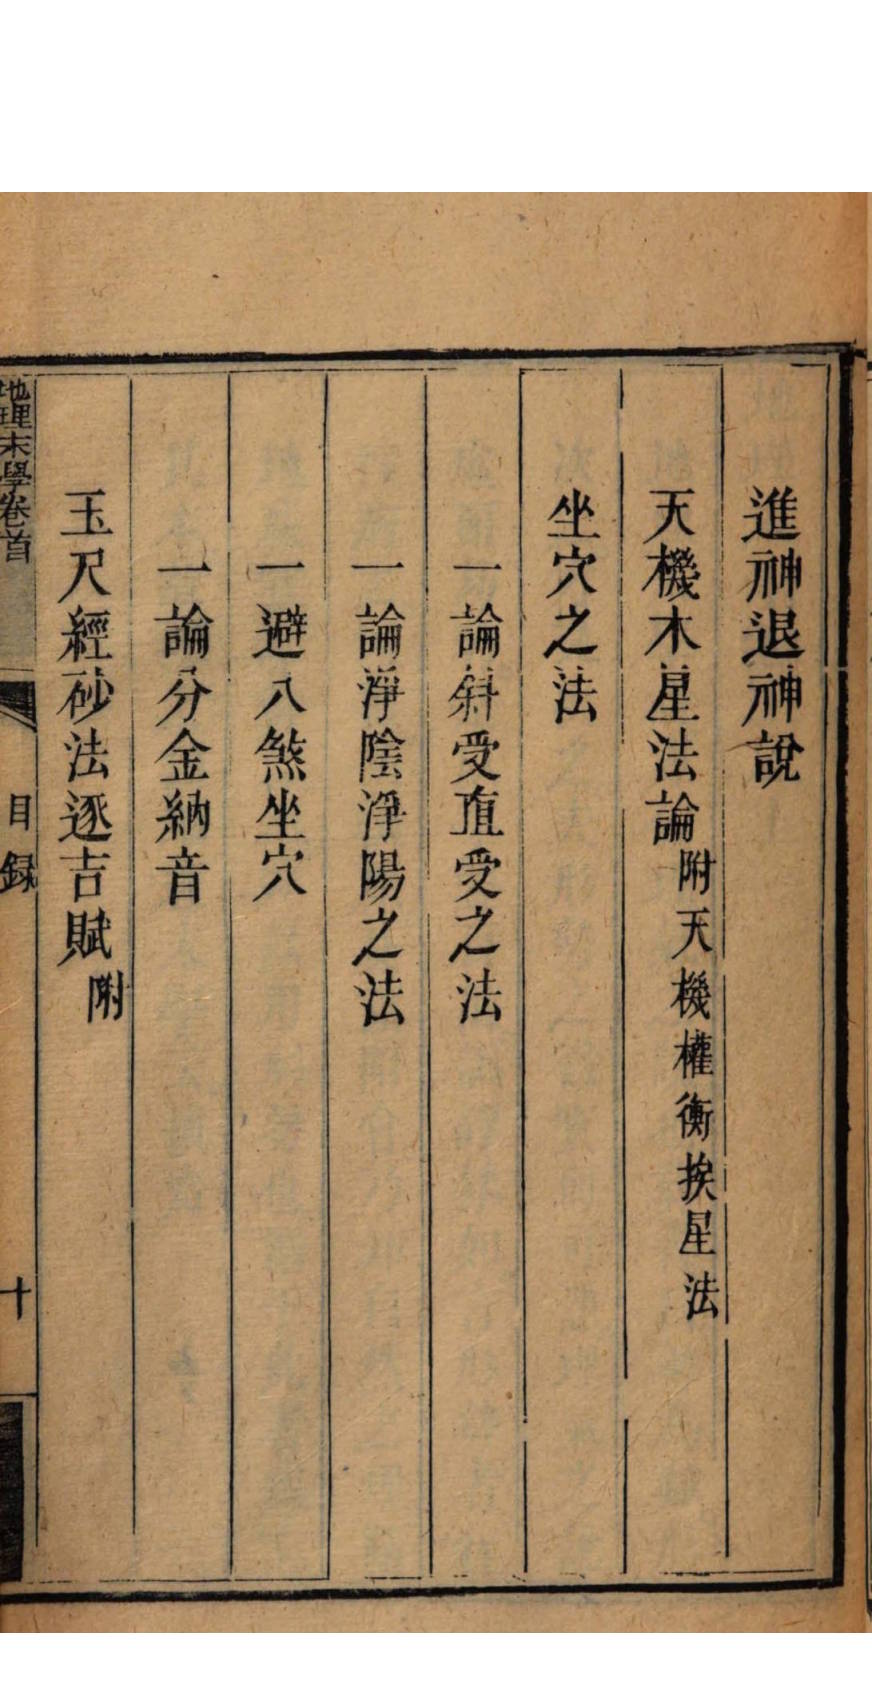 進神退神說
天機木星法論附天機權衡挨星法
坐穴之法
一論斜受直受之法
一論淨陰淨陽之法
一避八煞坐穴
一論分金納音
玉尺經砂法逐吉賦附
地理末學卷首
目錄
十